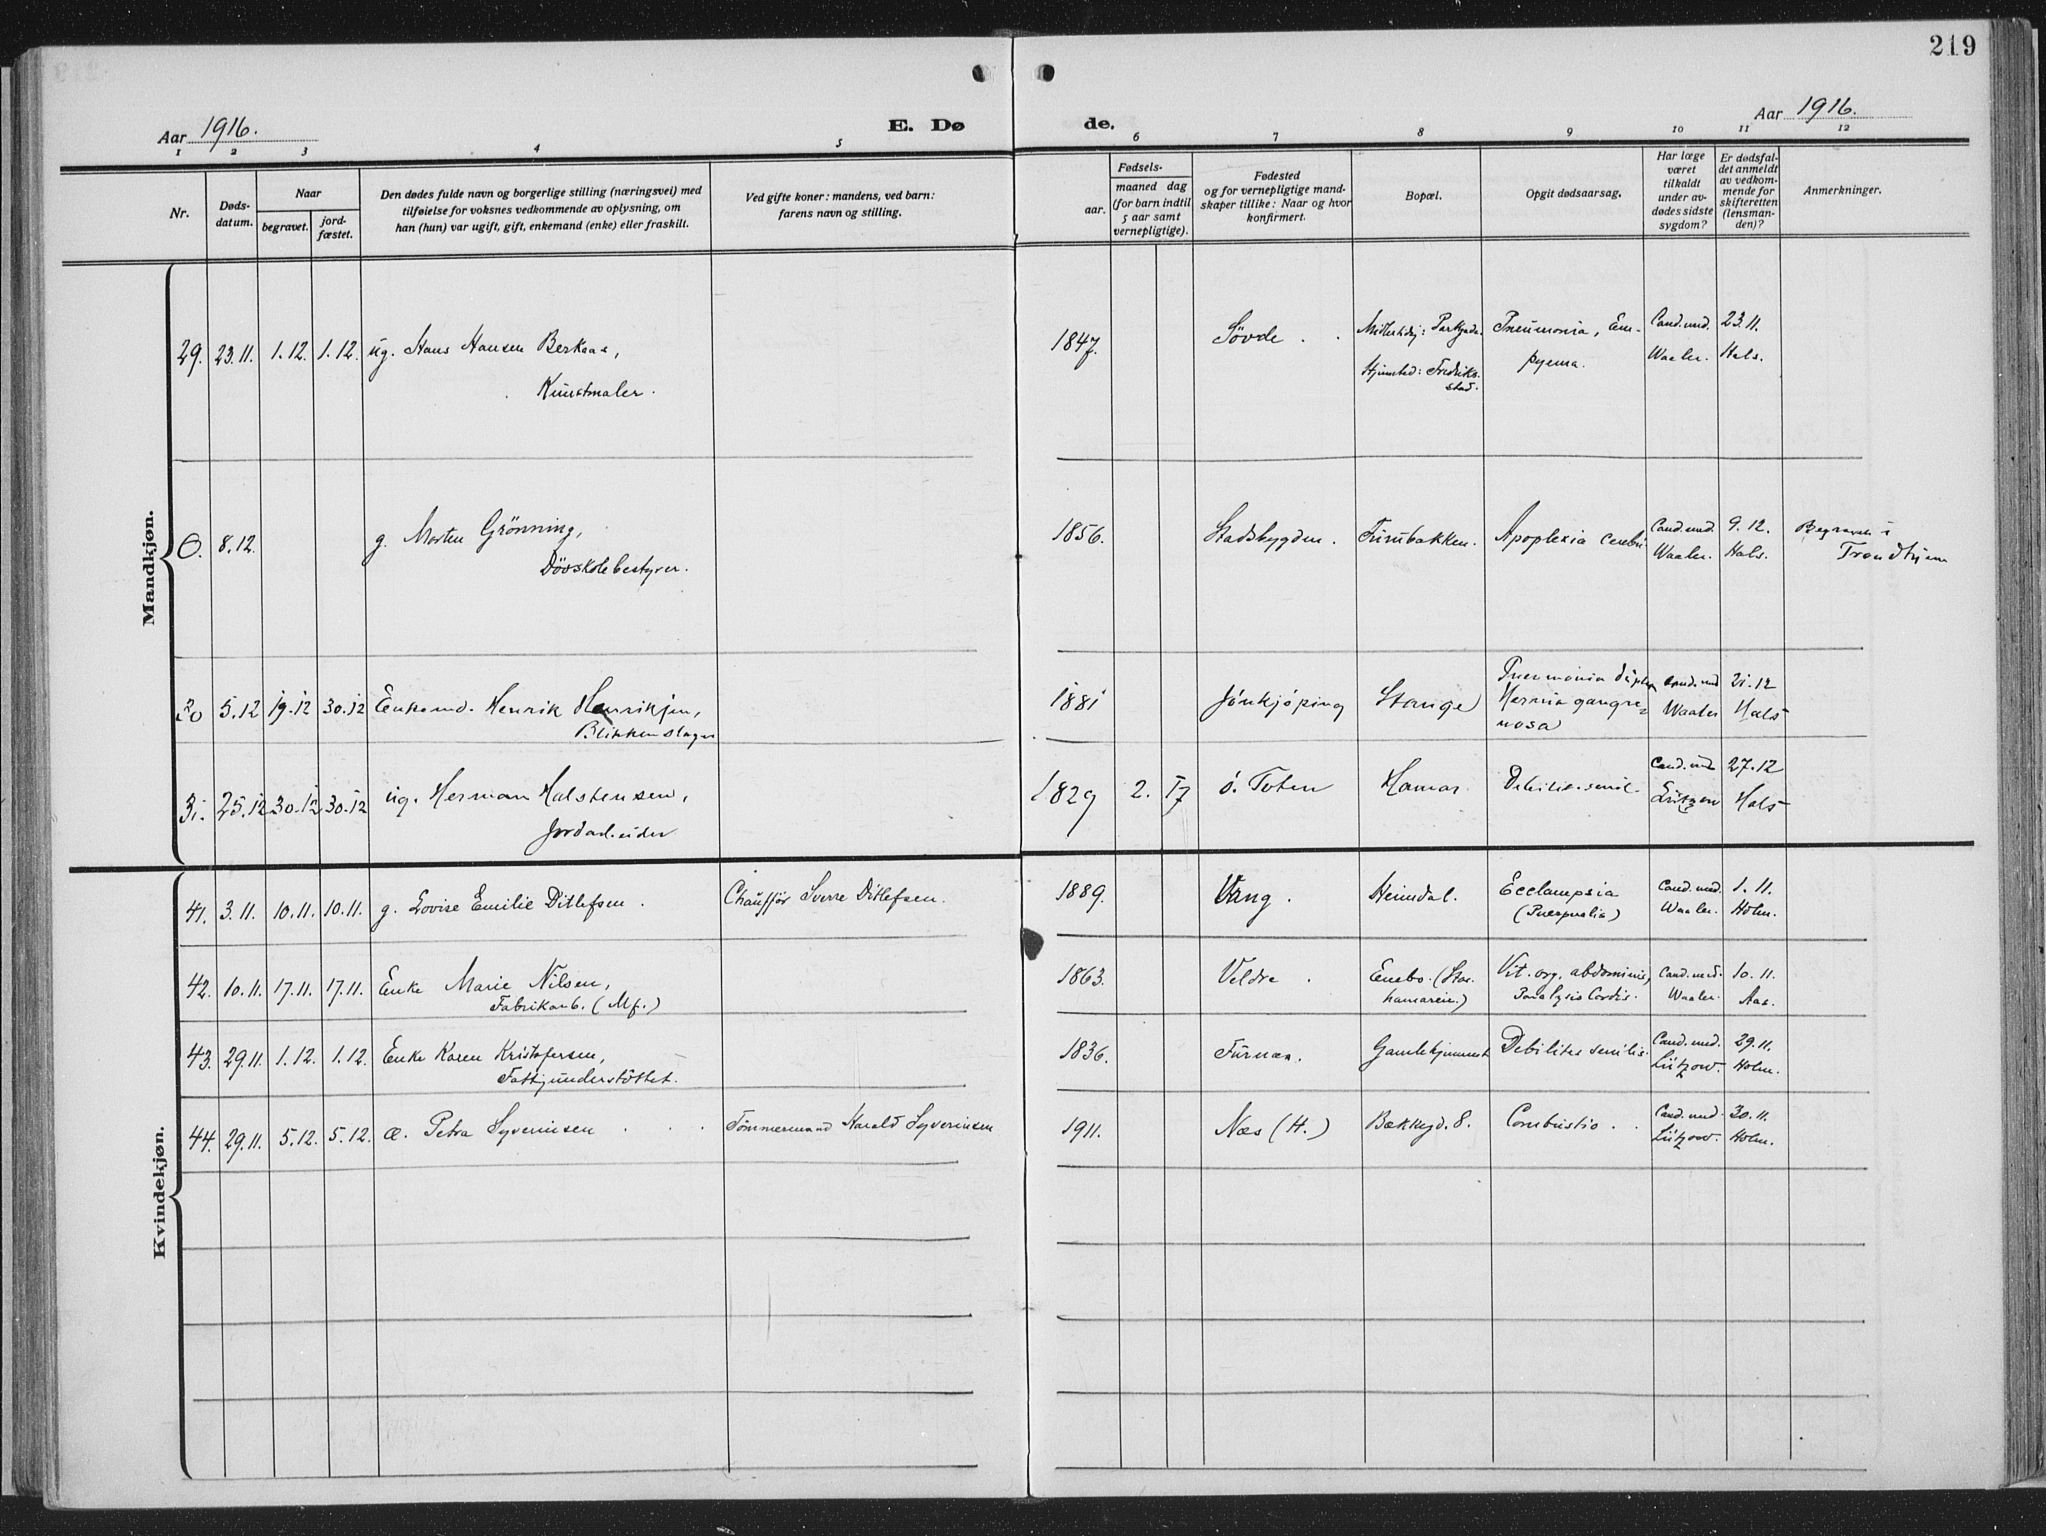 219
Aar 1916.
E. Dø
de.
Aar 1916.
1 2 3 4 5 6 7 8 9 10 11 12
Nr.
Døds-
datum.
Naar
begravet.
jord-
fæstet.
Den dødes fulde navn og borgerlige stilling (næringsvei) med
tilføielse for voksnes vedkommende av oplysning, om
han (hun) var ugift, gift, enkemand (enke) eller fraskilt.
Ved gifte koner: mandens, ved barn:
farens navn og stilling.
Fødsels-
aar.
maaned dag
(for barn indtil
5 aar samt
vernepligtige).
Fødested
og for vernepligtige mand-
skaper tillike: Naar og hvor
konfirmert.
Bopæl.
Opgit dødsaarsag.
Har læge
været
tilkaldt
under av-
dødes sidste
sygdom?
Er dødsfal-
det anmeldt
av vedkom-
mende for
skifteretten
(lensman-
den)?
Anmerkninger.
Mandkjøn.
29. 23.11. 1.12. 1.12. ug. Hans Hansen Berkaas,
Kunstmaler.
1847. Søvde
Midlertidig: Parkgada.
Hjemsted: Fredriks-
stad.
Pneumonia, Em-
pyema.
Cand. med.
Waaler.
23.11.
Hals.
0. 8.12. g. Morten Grönning,
Døvskolebestyrer.
1856. Stadsbygden. Furubakken. Apoplexia cerebri
Cand. med.
Waaler.
9.12.
Hals.
Begravet i
Trondhjem
30 5.12 19.12 30.12 Enkemd. Henrik Henriksen,
Blikkenslager
1881 Jönkjöping Stange
Pneumonia dupl.
Hernia gangre-
nosa
Cand. med
Waaler
21.12
Hals
31. 25.12 30.12 30.12 ug. Herman Halstensen,
Jordarbeider.
1829 2. 17 ö. Toten Hamar Debilit. senil.
Cand. med
Lützow
27.12
Hals
Kvindekjøn.
41. 3.11. 10.11. 10.11. g. Lovise Emilie Ditlefsen. Chauffør Sverre Ditlefsen.
1889. Vang. Heimdal. Ecclampsia
(Puerpualia)
Cand. med.
Waaler.
1.11.
Holm.
42. 10.11. 17.11. 17.11. Enke Marie Nilsen,
Fabrikarb. (Mf.)
1863. Veldre. Enebo. (Stor-
hamareie.)
Vit. org. abdominis,
Paralysis Cordis.
Cand. med.
Waaler.
10.11.
Aas.
43. 29.11. 1.12. 1.12. Enke Karen Kristofersen,
Fattigunderstöttet.
1836. Furnes. Gamlehjemmet Debilitas senilis.
Cand. med.
Lützow.
29.11.
Holm.
44. 29.11. 5.12. 5.12. æ. Petra Syverinsen Tömmermand Harald Syverinsen
1911. Næs (H.) Bækkegd. 8. Combustio.
Cand. med.
Lützow.
30.11.
Holm.